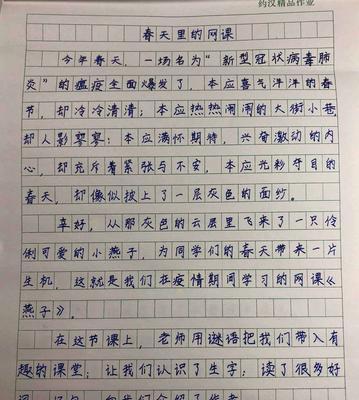 约汉精品作业
春天里的网课
今年春天，一场名为“新型冠状病毒肺
炎”的瘟疫全面爆发了，本应喜气洋洋的春
节，却冷冷清清；本应热热闹闹的大街小巷
却人影寥寥；本应满怀期待，兴奋激动的内
心，却充斥着紧张与不安，本应光彩夺目的
春天，却像似披上了一层灰色的面纱。
幸好，从那灰色的云层里飞来了一只伶
俐可爱的小燕子，为同学们的春天带来一片
生机，这就是我们在疫情期间学习的网课《
燕子》。
在这节课上，老师用谜语把我们带入有
趣的课堂；让我们认识了生字；读了很多好